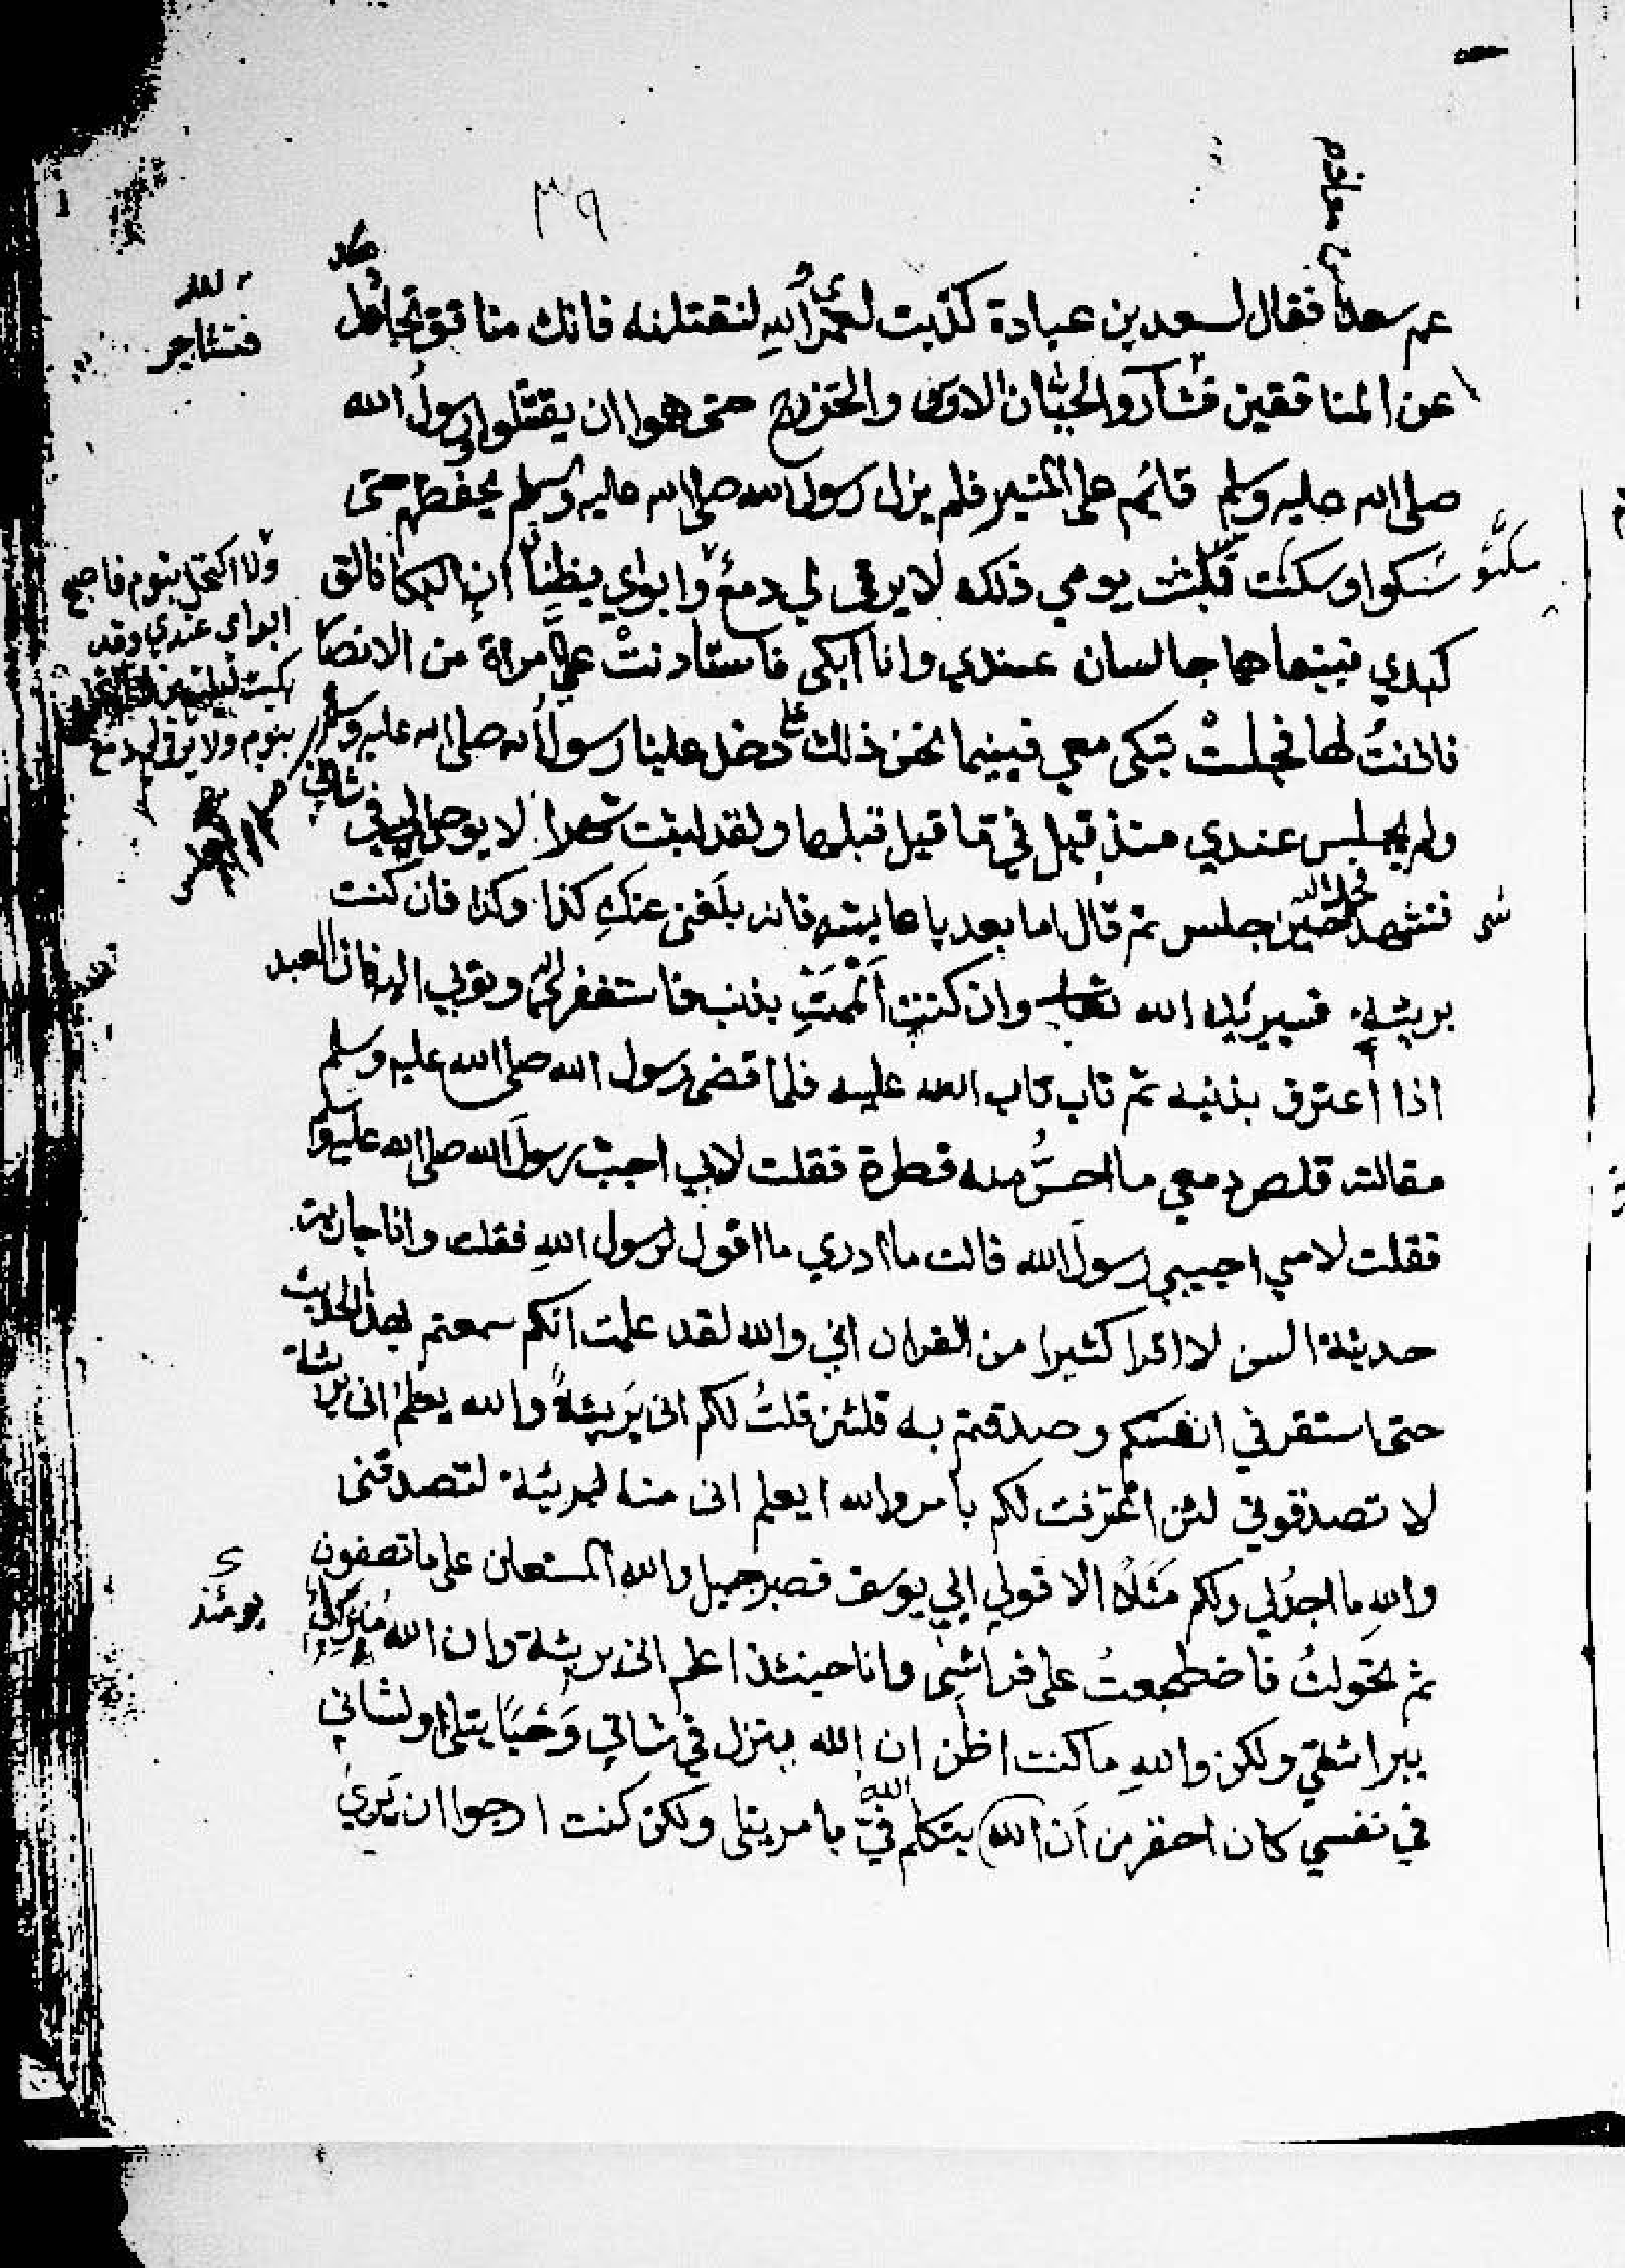 ٣٩
بن معاذ م
عم سعد فقال لسعد بن عبادة كذبت لعمر الله لنقتلنه فانك منافق تجادل
عن المنافقين فثاروا الحيان الاوس والخزرج حتى هموا ان يقتتلوا ورسول الله
فتشاجر
صلى الله عليه وسلم قائم على المنبر فلم يزل رسول الله صلى الله عليه وسلم يخفضهم حتى
سكتوا
سكتوا وسكت فبكيت يومي ذلك لا يرقى لي دمع وابواي يظنا ان البكا فالق
ولا اكتحل بنوم فاصبح
ابواي عندي وقد
بكيت ليلتين
بنوم ولا يرقى لي دمع
كبدي فبينما هما جالسان عندي وانا ابكي فاستاذنت علي امراة من الانصا
فاذنت لها فجلست تبكى معي فبينما نحن على ذلك دخل علينا رسول الله صلى الله عليه وسلم
ولم يجلس عندي منذ قيل في ما قيل قبلها ولقد لبثت شهرا لا يوحى اليه في شاني
فتشهد حين جلس ثم قال اما بعد يا عايشه فانه بلغنى عنك كذا وكذا فان كنت
بريئة فسيبرئك الله تعالى وان كنت الممت بذنب فاستغفري الله وتوبي اليه فان العبد
اذا اعترف بذنبه ثم تاب تاب الله عليه فلما قضى رسول الله صلى الله عليه وسلم
مقالته قلص دمعي ما احس منه قطرة فقلت لابي اجب رسول الله صلى الله عليه وسلم
فقلت لامي اجيبي رسول الله قالت ما ادري ما اقول لرسول الله فقلت وانا جارية
حديثة السن لا اقرا كثيرا من القران اني والله لقد علمت انكم سمعتم بهذا الحديث
حتى استقر في انفسكم وصدقتم به فلئن قلت لكم انى بريئة والله يعلم انى بريئة
لا تصدقوني لئن اعترفت لكم بامر والله يعلم انى منه لبريئة لتصدقنى
والله ما اجد لي ولكم مثلا الا قول ابي يوسف فصبر جميل والله المستعان على ما تصفون
ثم تحولت فاضطجعت على فراشى وانا حينئذ اعلم انى بريئة وان الله مبرئي
يومئذ
ببرائتي ولكن والله ما كنت اظن ان الله ينزل في شاني وحيا يتلى ولشاني
في نفسي كان احقر من ان الله يتكلم في بامر يتلى ولكن كنت ارجوا ان يري